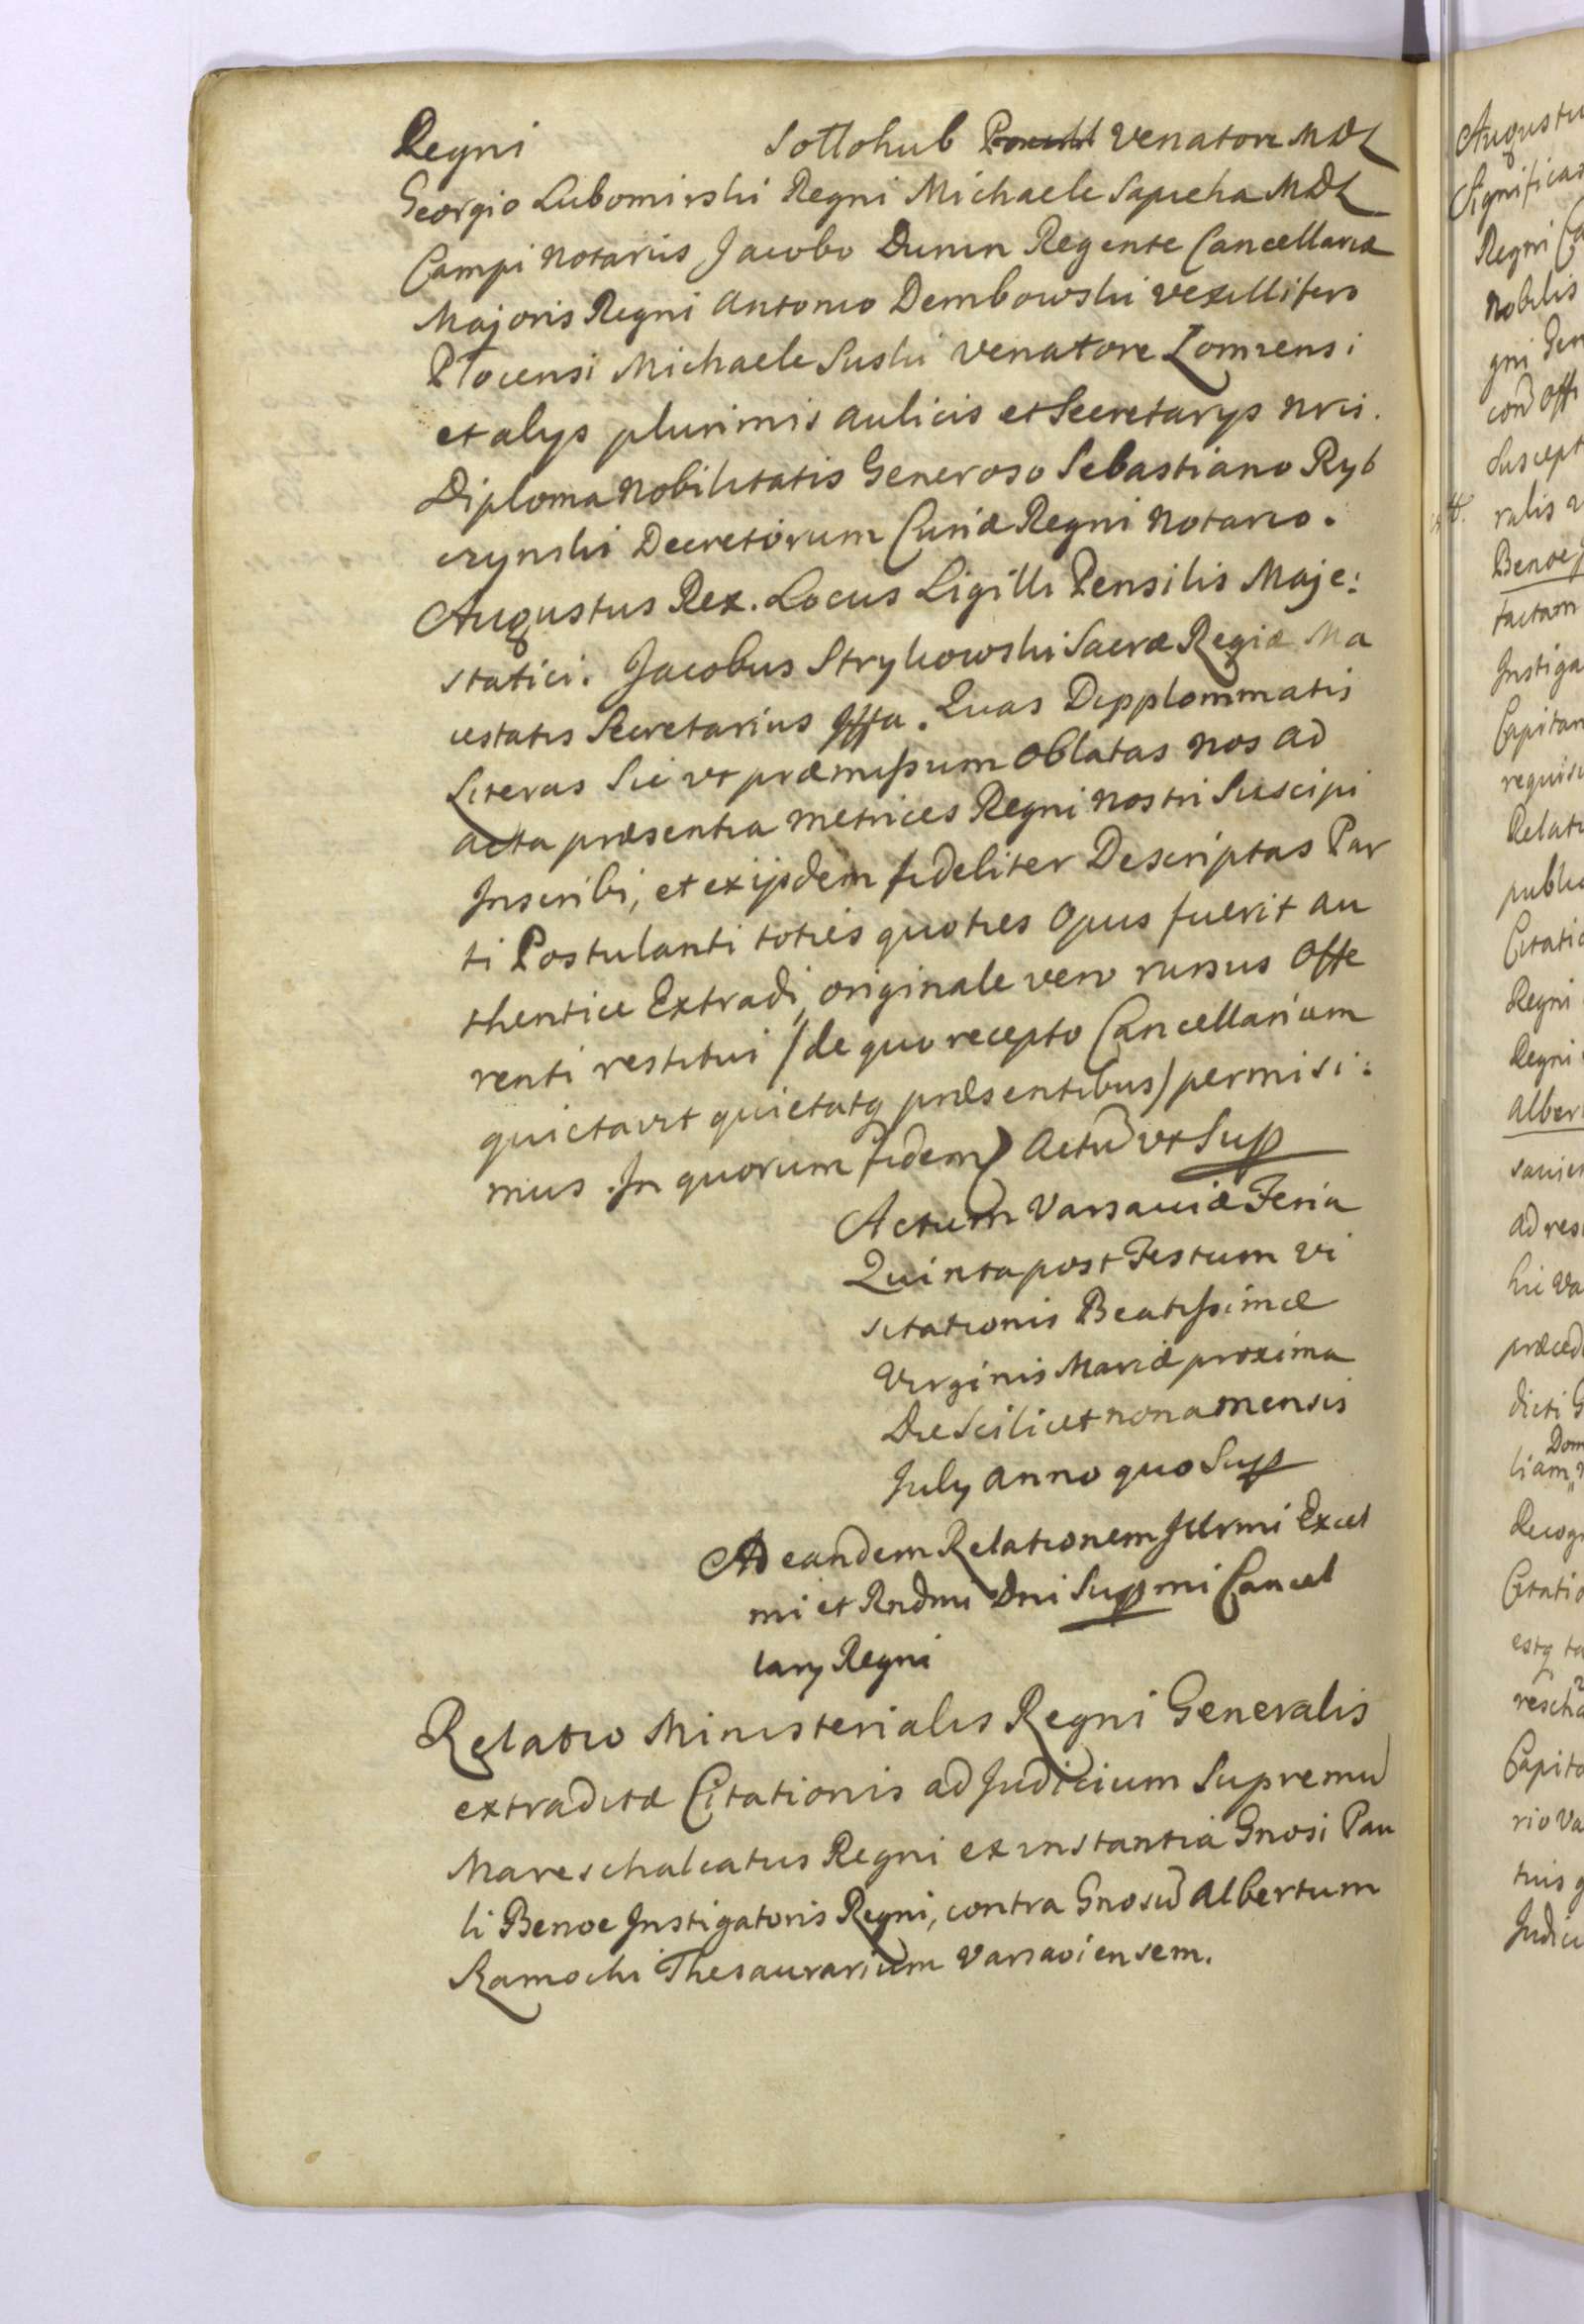 Regni Sottohub Venatore MDL
Georgio Lubomirski Regni Michaele Sapieha MDL
Campi Notariis Jacobo Dunin Regente Cancellariæ
Majoris Regni Antonio Dembowski vexillifero
Plocensi Michaele Suski Venatore Lomzensi
et alys plurimis aulicis et Secretarys nris.
Diploma Nobilitatis Generoso Sebastiano Ryb
czynski Decretorum Curiæ Regni Notario.
Augustus Rex. Locus Sigilli Pensilis Maje:
statici. Jacobus Strykowski Sacræ Regiæ Ma
iestatis Secretarius Mppa. Quas Dipplommatis
Literas Sic ut præmissum oblatas nos ad
acta præsentia metrices Regni nostri Suscipi
Inscribi, et exijsdem fideliter Descriptas Par
ti Postulanti toties quoties Opus fuerit au
thentice Extradi, originale vero rursus Offe
renti restitui /de quo recepto Cancellariam
quietavit quietatq præsentibus/ permisi:
mus. In quorum fidem) Actu ut Supp
Actum Varsaviæ Feria
Quinta post Festum Vi
sitationis Beatissimæ
Virginis Mariæ proxima
Die Scilicet nona mensis
July anno quo Supp
Ad eandem Relationem Jllrmi Excel
mi et Rndmi Dni Suppmi Cancel
lary Regni
Relatio Ministerialis Regni Generalis
extraditæ Citationis ad Judicium Supremu
Mareschalcatus Regni ex instantia Gnosi Pau
li Benoe Instigatoris Regni, contra Gnosu Albertum
Ramocki Thesaurarium Varsaviensem.
Augustu
Significa
Regni
nobilis
gni Gen
con Offi
Suscept
ralis
Benoe
factam
Instiga
Capitan
requisi
Relati
public
Citatio
Regni
Regni
Alber
ad res
hic Va
præced
dicti G
Dom
liam
Recog
Citatio
estq ta
Capita
rio Va
Judici